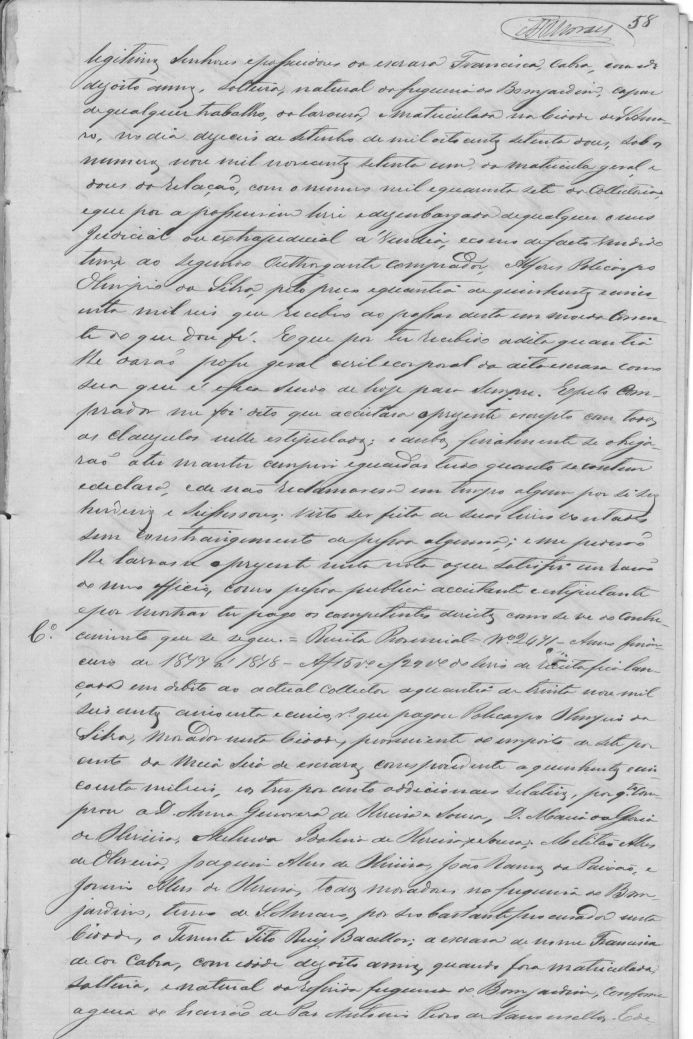 58
legitimos Senhores e possuidores da escrava Francisca, Cabra, com de
dezoito annos, solteira, natural da freguesia do Bomjardim, capaz
de qualquer trabalho, da lavoura, e matriculada na Cidade de S. Ama-
ro, no dia dezeseis de Setembro de mil oito centos setenta dous, sob os
numeros nove mil novecentos setenta um da matricula geral, e
dous da relação, com o numero mil e quarenta sete da Collectoria
e que por a possuirem livre e desembargada de qualquer onus
Judicial ou extrajudicial a vendia, e como de facto vendido
tem ao segundo Outhorgante comprador, Alferes Policarpo
Olimpio da Silva, pelo preço e quantia de quinhentos e cinco-
enta mil reis que recebeo ao passar desta em moeda Corren-
te do que dou fé. E que por ter recebido a dita quantia
lhe darão posse geral civil e corporal da dita escrava como
sua que é e fica sendo de hoje para sempre. E pelo Com-
prador me foi dito que acceitava a presente escripta com todas
as clausulas nella estipuladas; e ambos finalmente se obriga-
rão a ter manter cumprir e guardar tudo quanto se contem
e declara, e de não reclamarem em tempo algum por si seus
herdeiros e sucessores, visto ser feita de suas livres vontades
sem constrangimento de pessoa alguma; e me pedirão
lhe lavrasse a presente nesta nota o que satisfiz em razão
do meu officio, como pessoa publica acceitante e estipulante
e por mostrar ter pago os competentes direitos como se ve do conhe-
C.º cimento que se segue. = Receita Provincial - Nº 2471 - Anno finan-
ceiro de 1877 á 1878 - Af 15 vº e f 29 vº do livro de receita fica lan-
çada em debito ao actual Collector a quantia de trinta nove mil
seis centos cincoenta e cinco rs. que pagou Policarpo Olimpio da
Silva, morador nesta Cidade, proveniente do imposto de sete por
cento da meia siza de escravos correspondente a quinhentos cin-
coenta mil reis, e os tres por cento addicionaes relativos, por q. com-
prou a D. Anna Genoveva de Oliveira e Sousa, D. Maria da Gloria
de Oliveira, Belmira de Oliveira e Sousa, Melitão Alves
de Oliveira, Joaquim Alves de Oliveira, João Nunes da Paixão, e
Alves de Oliveira, todos moradores na freguesia do Bom-
jardim, termo de S. Amaro, por seo bastante procurador nesta
Cidade, o Tenente Tito Ruy Bacellar; a escrava de nome Francisca
de cor Cabra, com idade dezoito annos, quando fora matriculada
solteira, e natural da referida freguesia do Bomjardim, conforme
a guia do Escrivão de Paz Antonio Pedro de Vasconcellos. E de